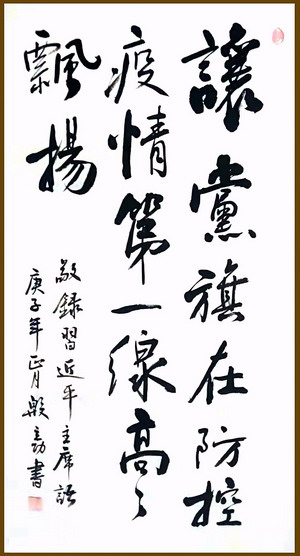 讓黨旗在防控
疫情第一線高々
飄揚
敬錄習近平主席語
庚子年正月
書